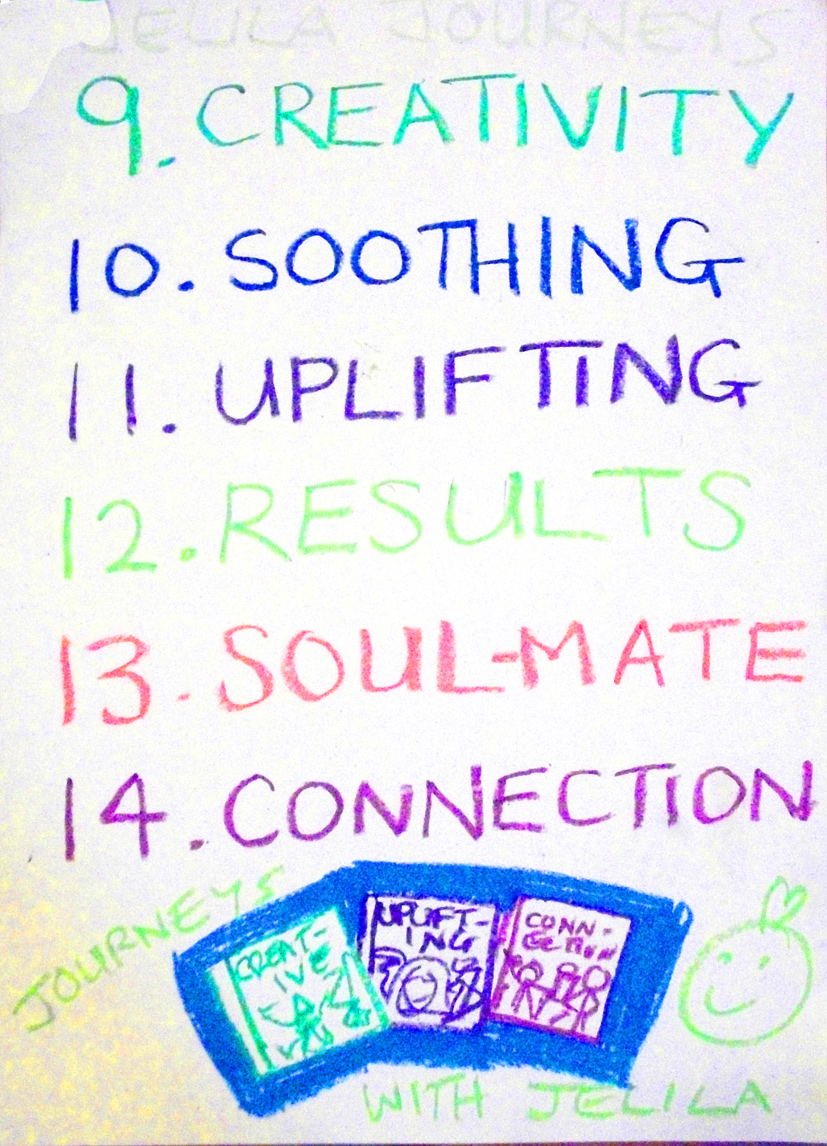 JELILA JOURNEYS
9. CREATIVITY
10. SOOTHING
11. UPLIFTING
12. RESULTS
13. SOUL-MATE
14. CONNECTION
JOURNEYS
CREAT-
IVE
UPLIFT-
ING
CONN-
ECTION
WITH JELILA